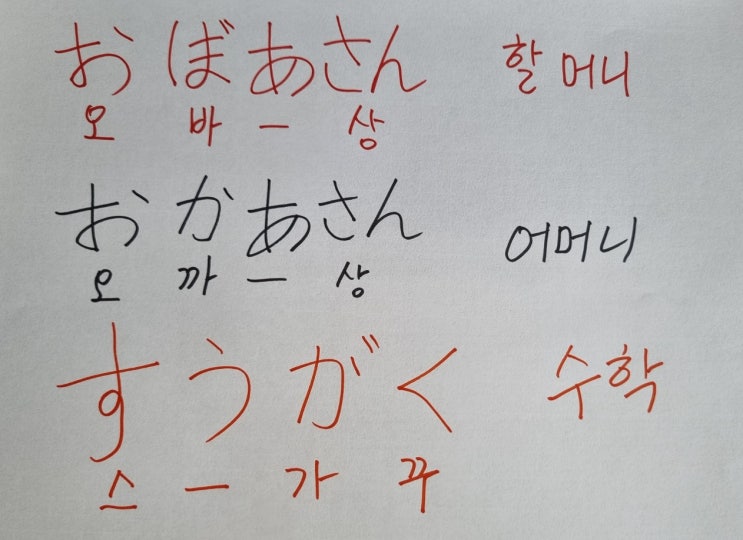 おばあさん 할머니
오 바 ー 상
おかあさん 어머니
오 까 ー 상
すうがく 수학
스 ー 가 꾸